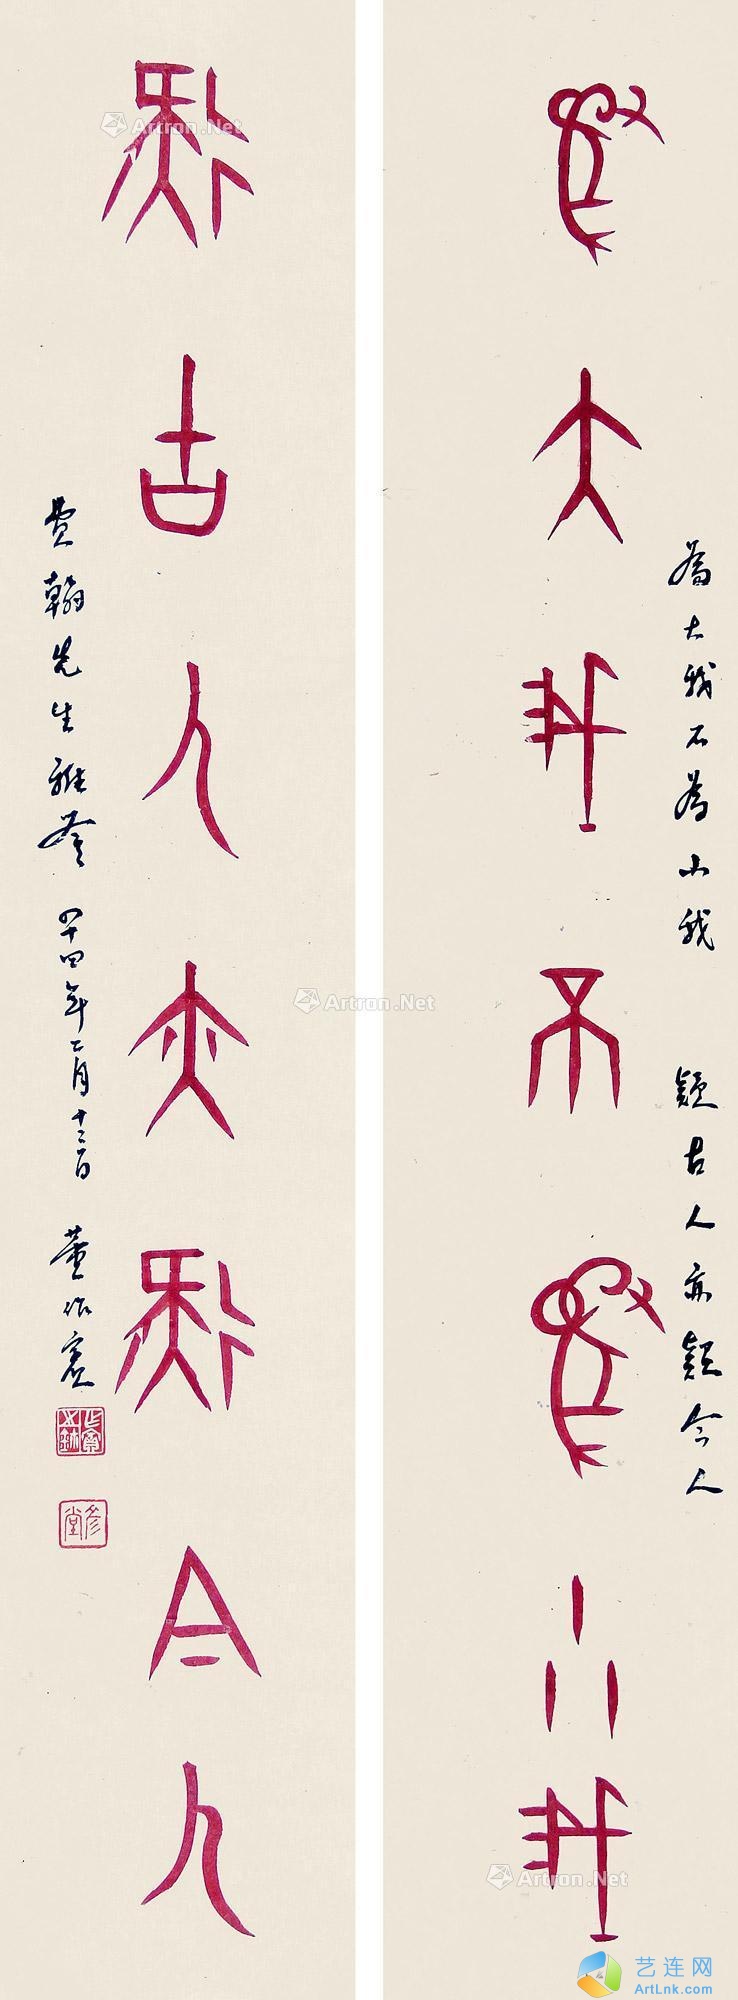 為大我不為小我
為大我不為小我 疑古人亦疑今人
疑古人亦疑今人
賓翰先生雅屬 四十四年二月十二日 董作賓
彥堂
Artron.Net
Artron.Net
Artron.Net
艺连网
ArtLnk.com